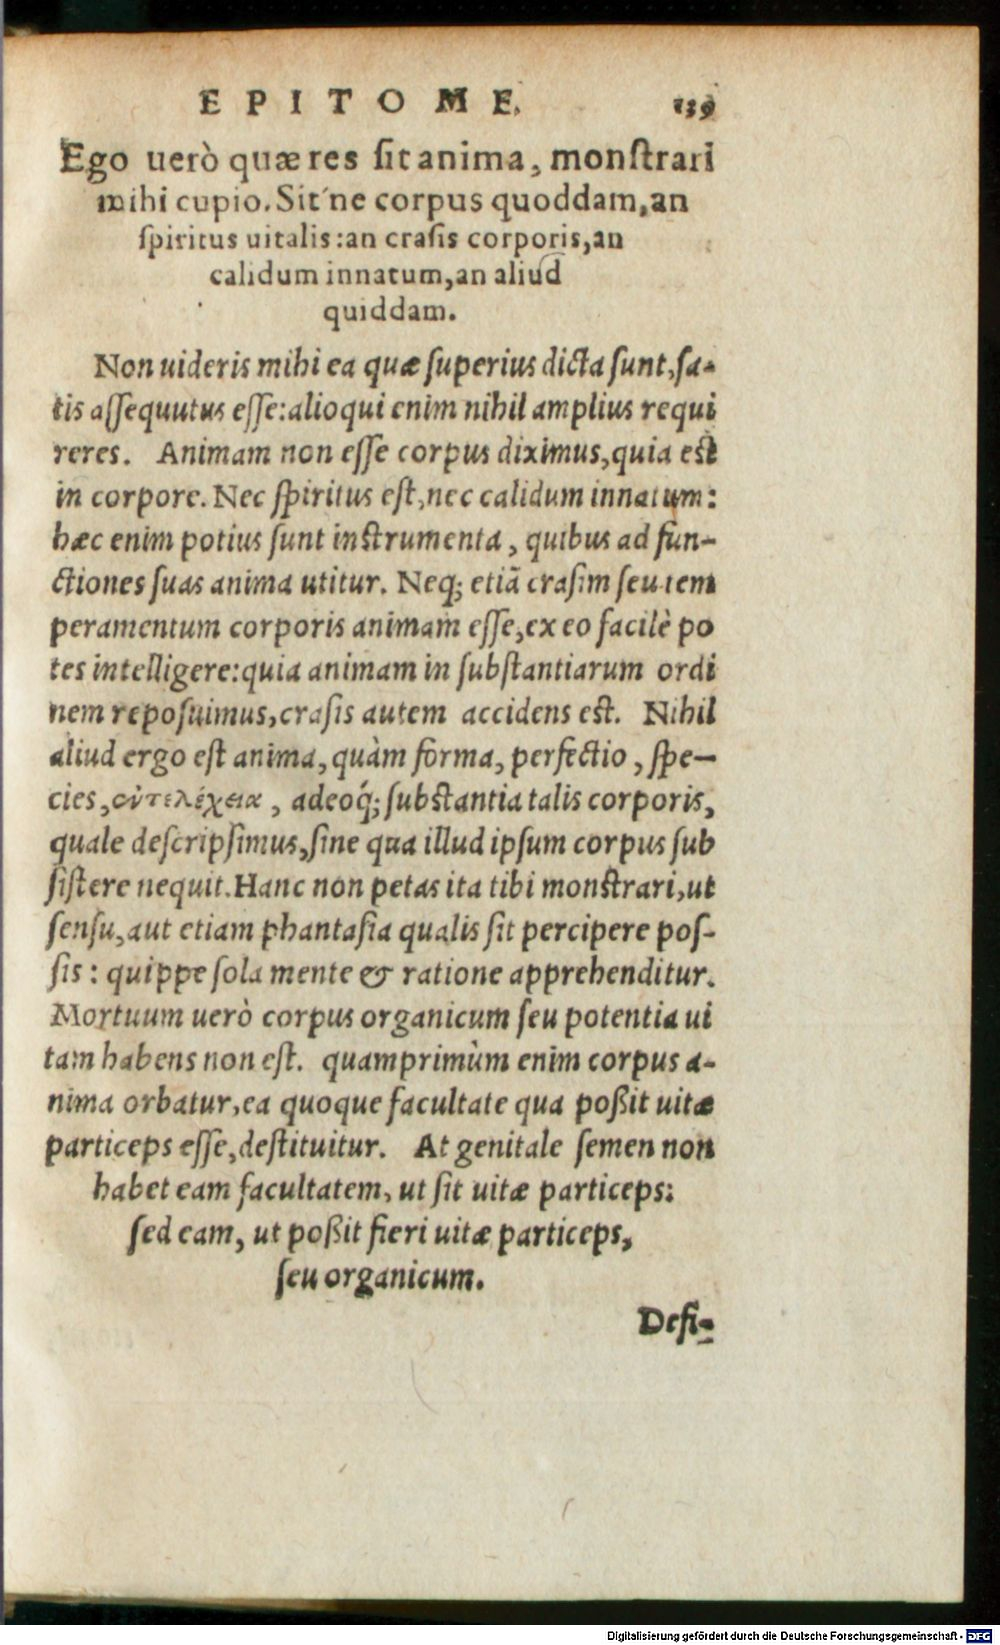 EPITOME. 139
Ego uerò quæ res ſit anima, monſtrari
mihi cupio. Sit´ne corpus quoddam, an
ſpiritus uitalis: an craſis corporis, an
calidum innatum, an aliud
quiddam.
Non uideris mihi ea quæ ſuperius dicta ſunt, ſa-
tis aſſequutus eſſe: alioqui enim nihil amplius requi
reres. Animam non eſſe corpus diximus, quia est
in corpore. Nec ſpiritus eſt, nec calidum innatum:
hæc enim potius ſunt inſtrumenta, quibus ad fun-
ctiones ſuas anima utitur. Neq; etiã craſim ſeu tem
peramentum corporis animam eſſe, ex eo facilè po
tes intelligere: quia animam in ſubſtantiarum ordi
nem repoſuimus, craſis autem accidens eſt. Nihil
aliud ergo eſt anima, quàm forma, perfectio, ſpe-
cies, ἐντελέχεια, adeoq́; ſubſtantia talis corporis,
quale deſcripſimus, ſine qua illud ipſum corpus ſub
ſiſtere nequit. Hanc non petas ita tibi monſtrari, ut
ſenſu, aut etiam phantaſia qualis ſit percipere poſ-
ſis: quippe ſola mente & ratione apprehenditur.
Mortuum uerò corpus organicum ſeu potentia ui
tam habens non eſt. quamprimùm enim corpus a-
nima orbatur, ea quoque facultate qua poßit uitæ
particeps eſſe, deſtituitur. At genitale ſemen non
habet eam facultatem, ut ſit uitæ particeps:
ſed eam, ut poßit fieri uitæ particeps,
ſeu organicum.
Defi-
Digitalisierung gefördert durch die Deutsche Forschungsgemeinschaft - DFG